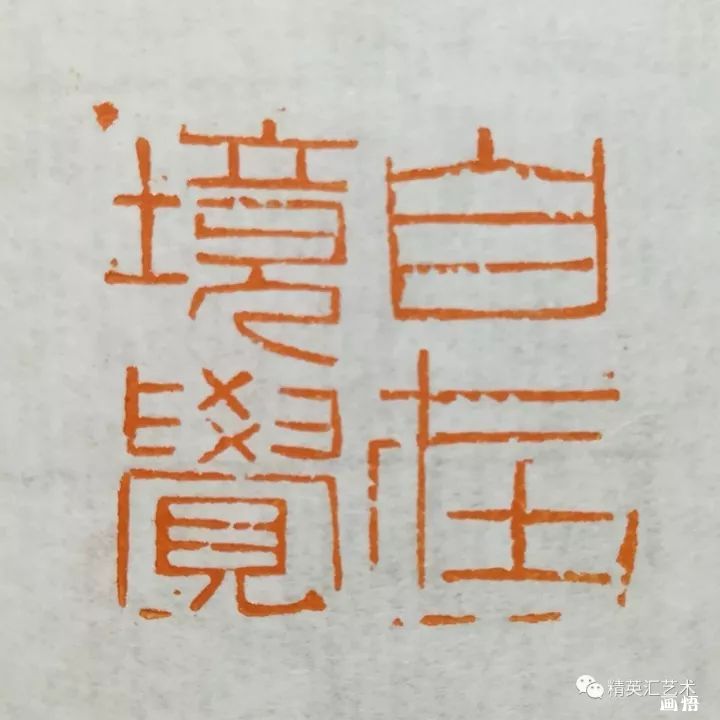 自在
境覺
精英汇艺术
画悟